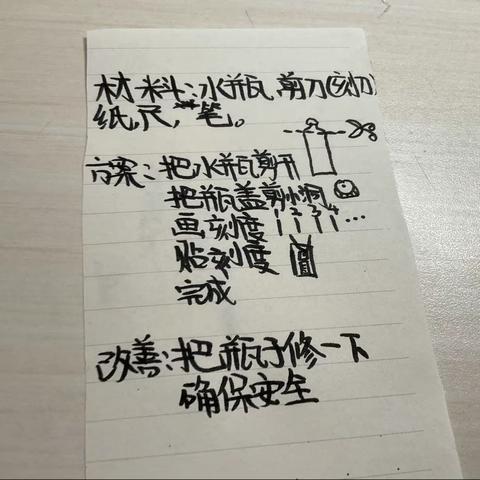 材料:水瓶,剪刀(刻刀)
纸,尺,笔。
方案:把水瓶剪开
把瓶盖剪小洞
画刻度 1 2 3 4 ...
贴刻度
完成
改善:把瓶子修一下
确保安全